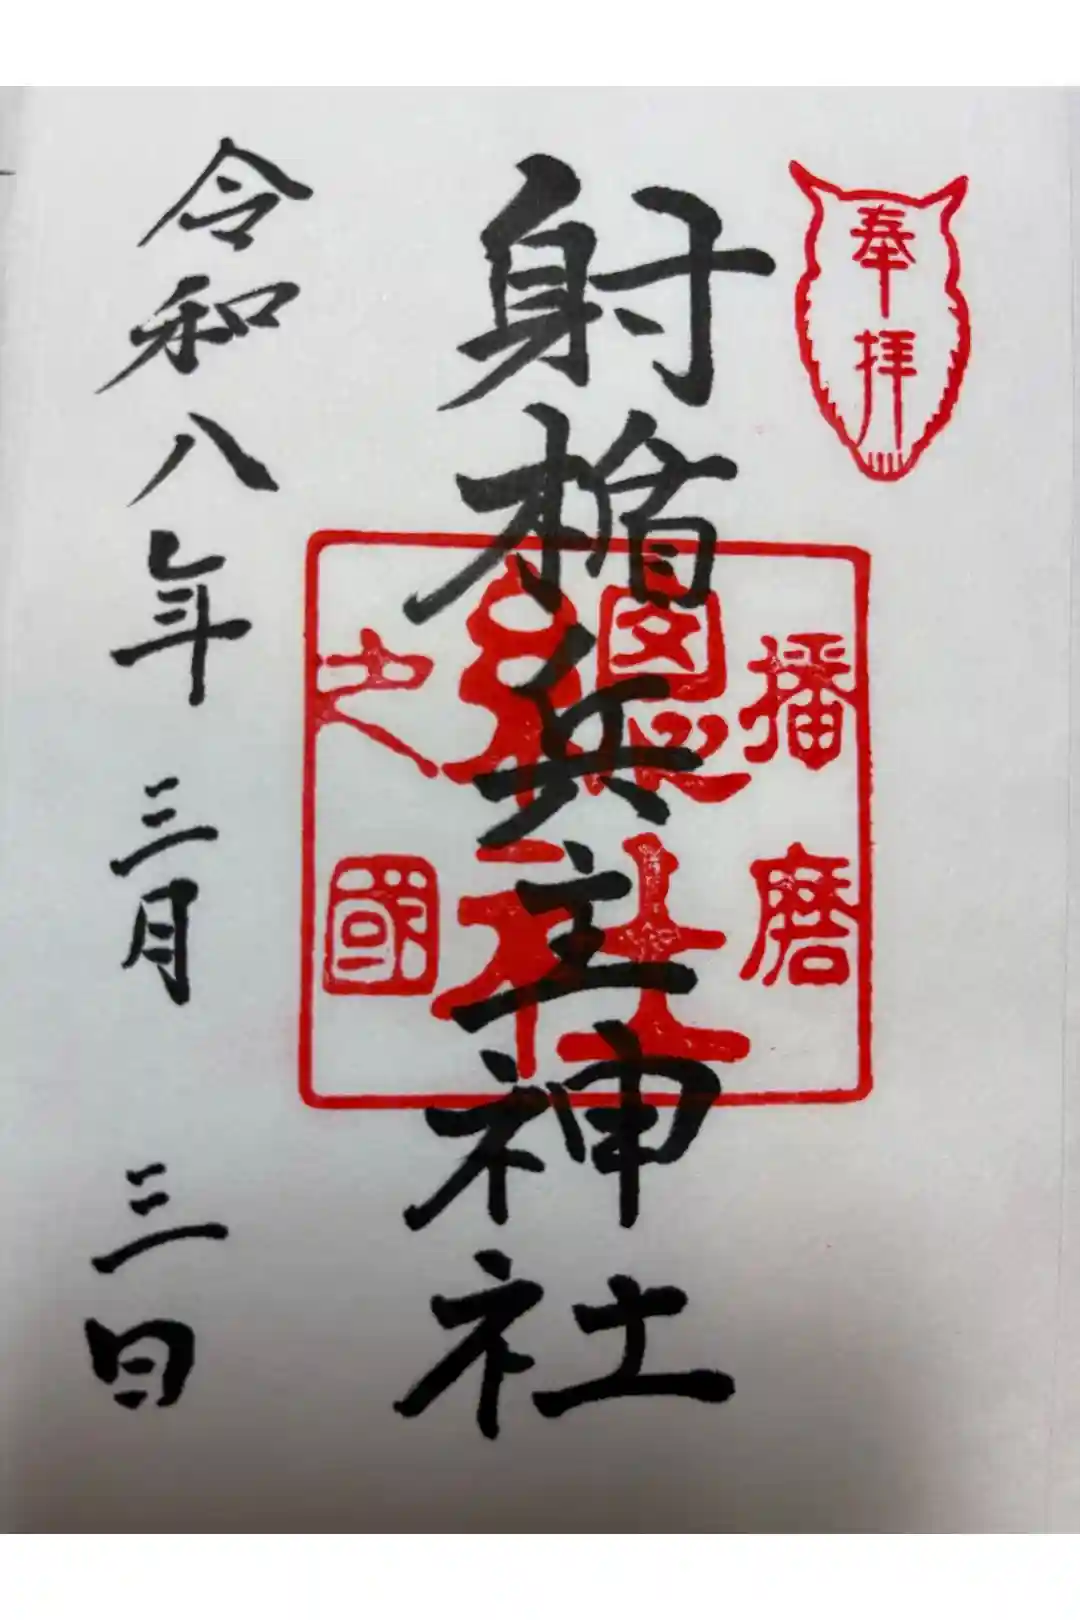 奉拝
播磨
總社
之國
射楯兵主神社
令和八年三月三日